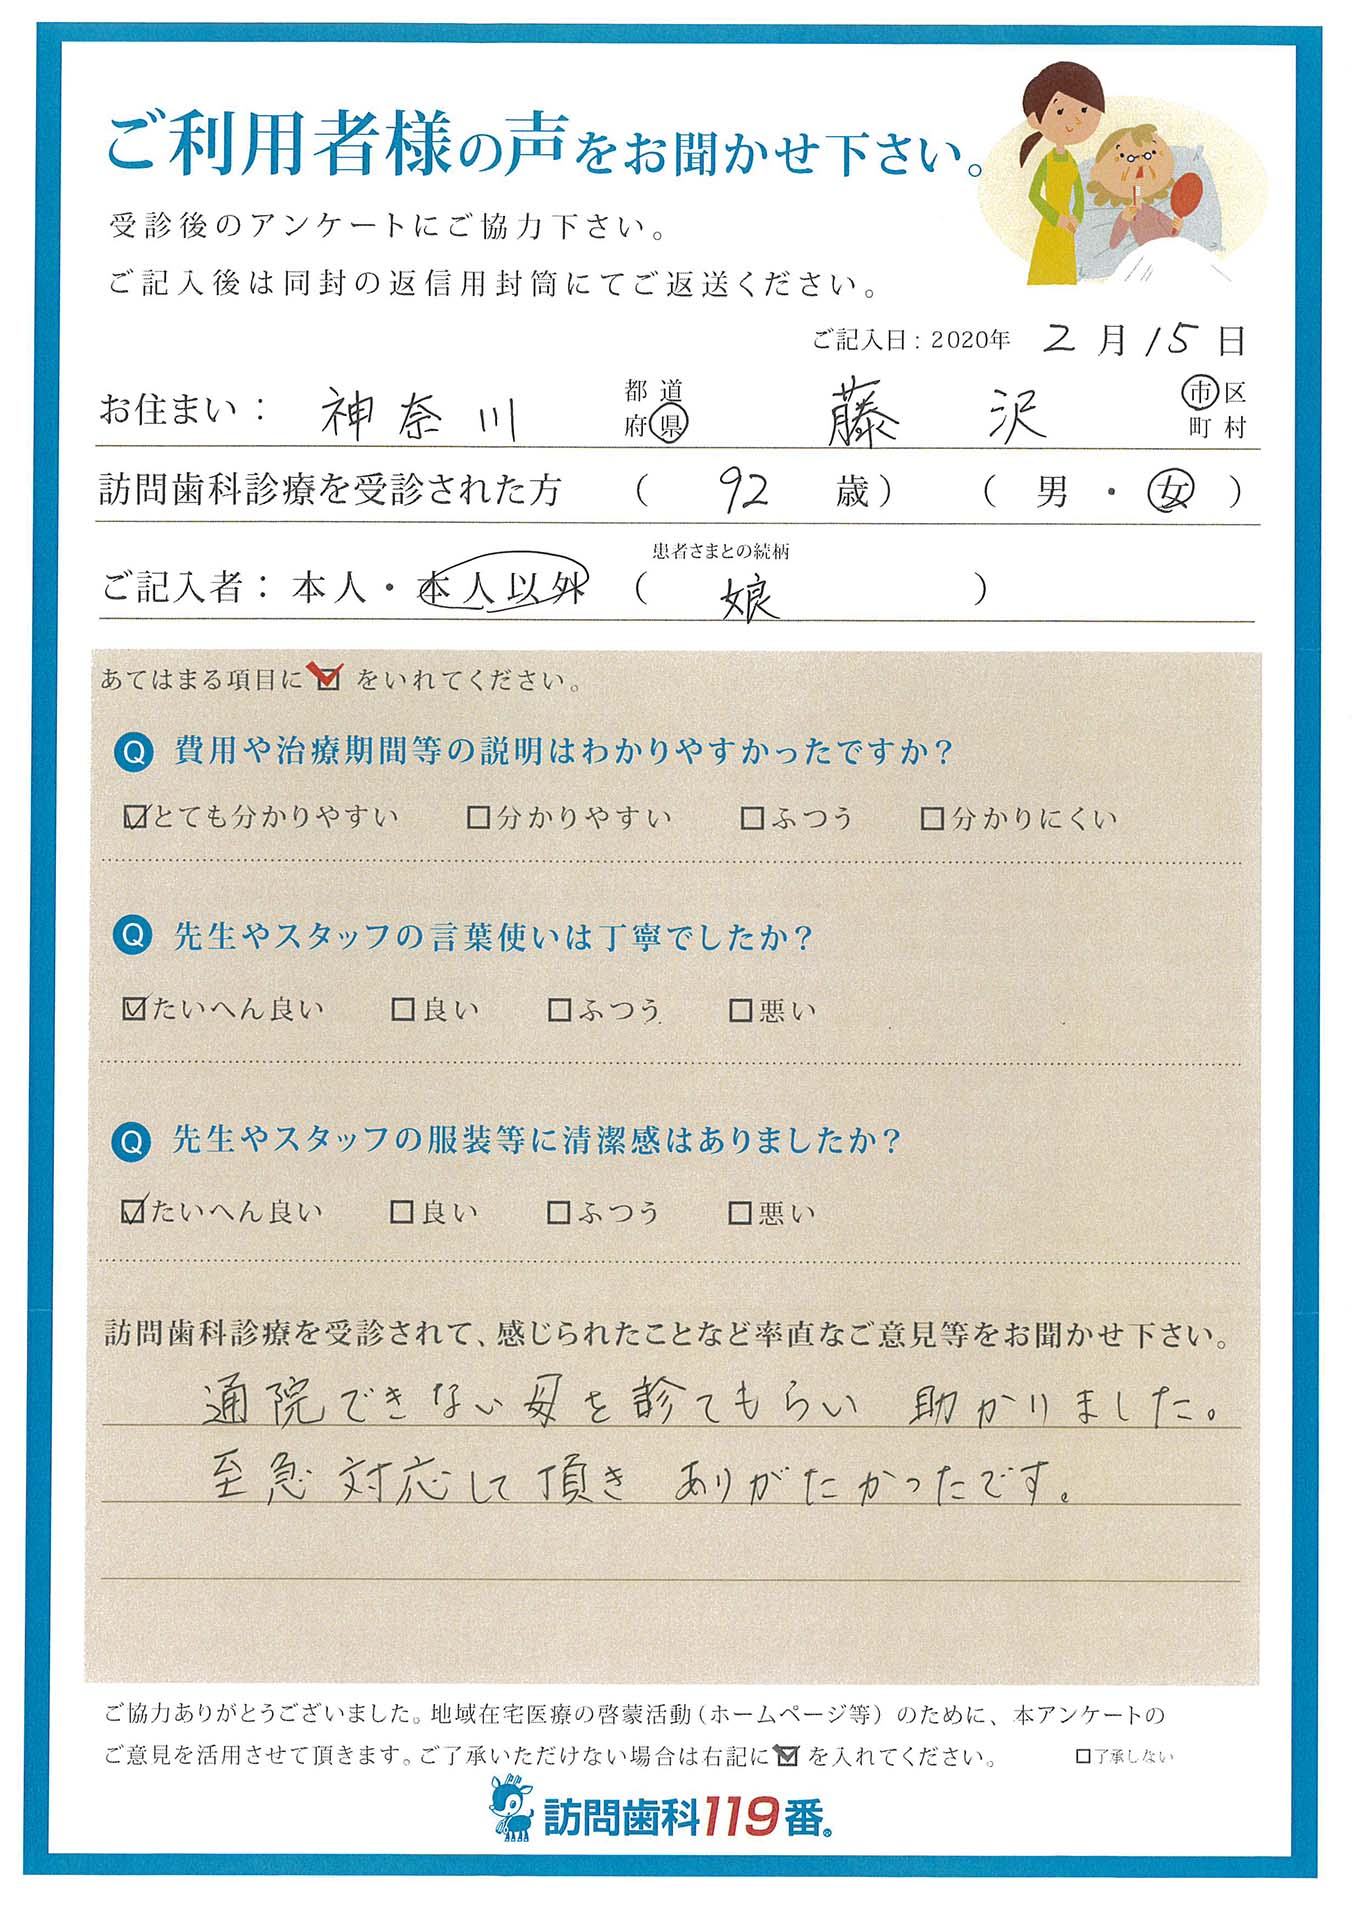 ご利用者様の声をお聞かせ下さい。
受診後のアンケートにご協力下さい。
ご記入後は同封の返信用封筒にてご返送ください。
ご記入日：2020年 2月15日
お住まい： 神奈川 都道府県 藤沢 市区町村
訪問歯科診療を受診された方 （ 92 歳）（ 男 ・ 女 ）
患者さまとの続柄
ご記入者：本人・本人以外 （ 娘 ）
あてはまる項目に☑をいれてください。
Q 費用や治療期間等の説明はわかりやすかったですか？
☑とても分かりやすい □分かりやすい □ふつう □分かりにくい
Q 先生やスタッフの言葉使いは丁寧でしたか？
☑たいへん良い □良い □ふつう □悪い
Q 先生やスタッフの服装等に清潔感はありましたか？
☑たいへん良い □良い □ふつう □悪い
訪問歯科診療を受診されて、感じられたことなど率直なご意見等をお聞かせ下さい。
通院できない母を診てもらい 助かりました。
至急対応して頂き ありがたかったです。
ご協力ありがとうございました。地域在宅医療の啓蒙活動（ホームページ等）のために、本アンケートの
ご意見を活用させて頂きます。ご了承いただけない場合は右記に☑を入れてください。 □了承しない
訪問歯科119番®